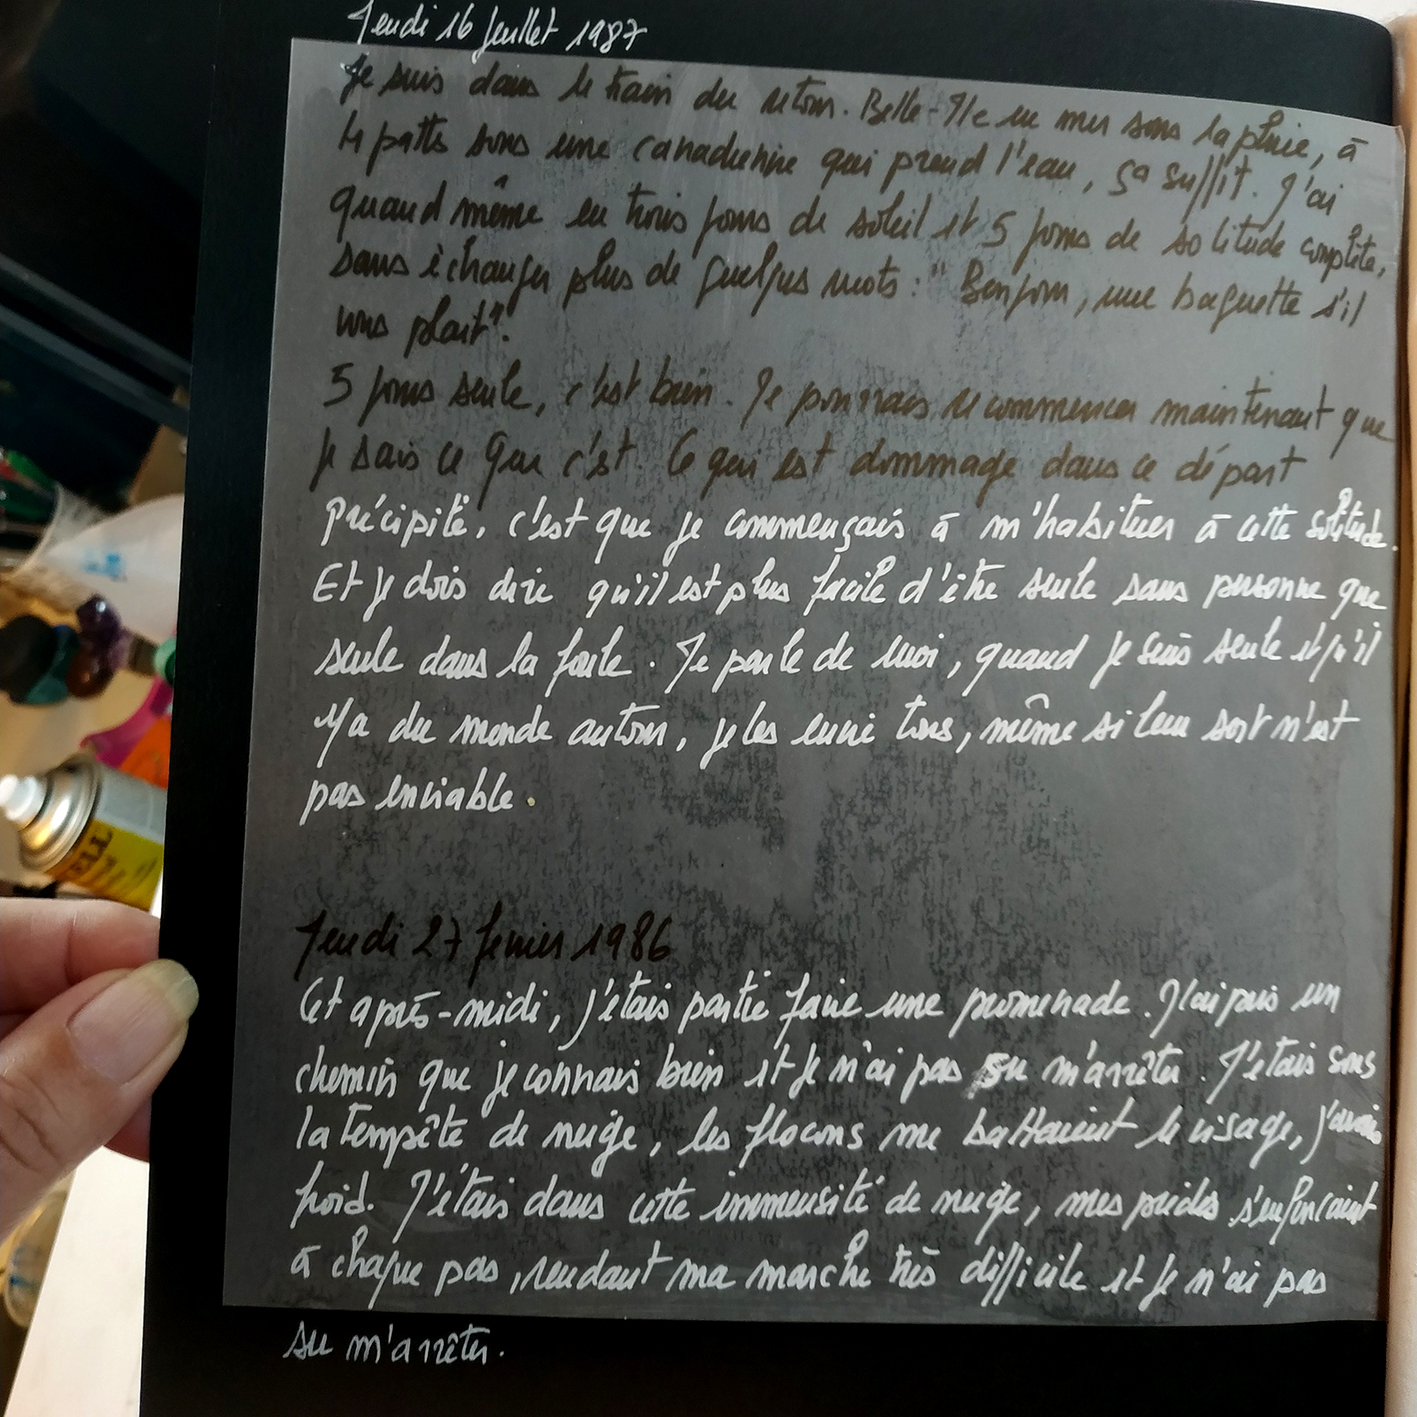 Jeudi 16 Juillet 1987
Je suis dans le train du retour. Belle-Ile en mer sous la pluie, à
4 pattes sous une canadienne qui prend l'eau, ça suffit. J'ai
quand même eu trois jours de soleil et 5 jours de solitude complète,
sans échanger plus de quelques mots : "Bonjour, une baguette s'il
vous plait".
5 jours seule, c'est bien. Je pourrais recommencer maintenant que
je sais ce que c'est. Ce qui est dommage dans ce départ
précipité, c'est que je commençais à m'habituer à cette solitude.
Et je dois dire qu'il est plus facile d'être seule sans personne que
seule dans la foule. Je parle de moi, quand je suis seule et qu'il
y a du monde autour, je les envie tous, même si leur sort n'est
pas enviable.
Jeudi 27 février 1986
Cet après-midi, j'étais partie faire une promenade. J'ai pris un
chemin que je connais bien et je n'ai pas su m'arrêter. J'étais sous
la tempête de neige, les flocons me battaient le visage, j'avais
froid. J'étais dans cette immensité de neige, mes pieds s'enfonçaient
à chaque pas, rendant ma marche très difficile et je n'ai pas
su m'arrêter.